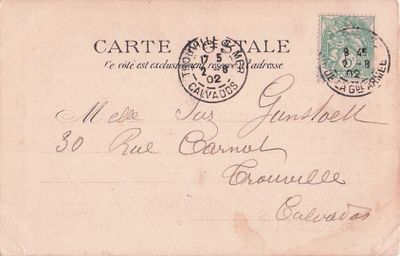 CARTE POSTALE
Ce côté est exclusivement réservé à l'adresse
TROUVILLE S/ MER
17 5
2 -8
02
CALVADOS
8 45
2 -8
02
DE LA Gde ARMÉE
Melle
30 Rue Carnot
Trouville
Calvados